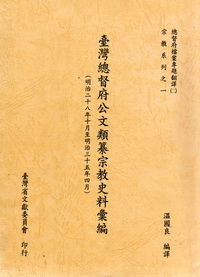 總督府檔案專題翻譯(二)
宗教系列之一
臺灣總督府公文類纂宗教史料彙編
(明治二十八年十月至明治三十五年四月)
溫國良 編譯
臺灣省文獻委員會 印行